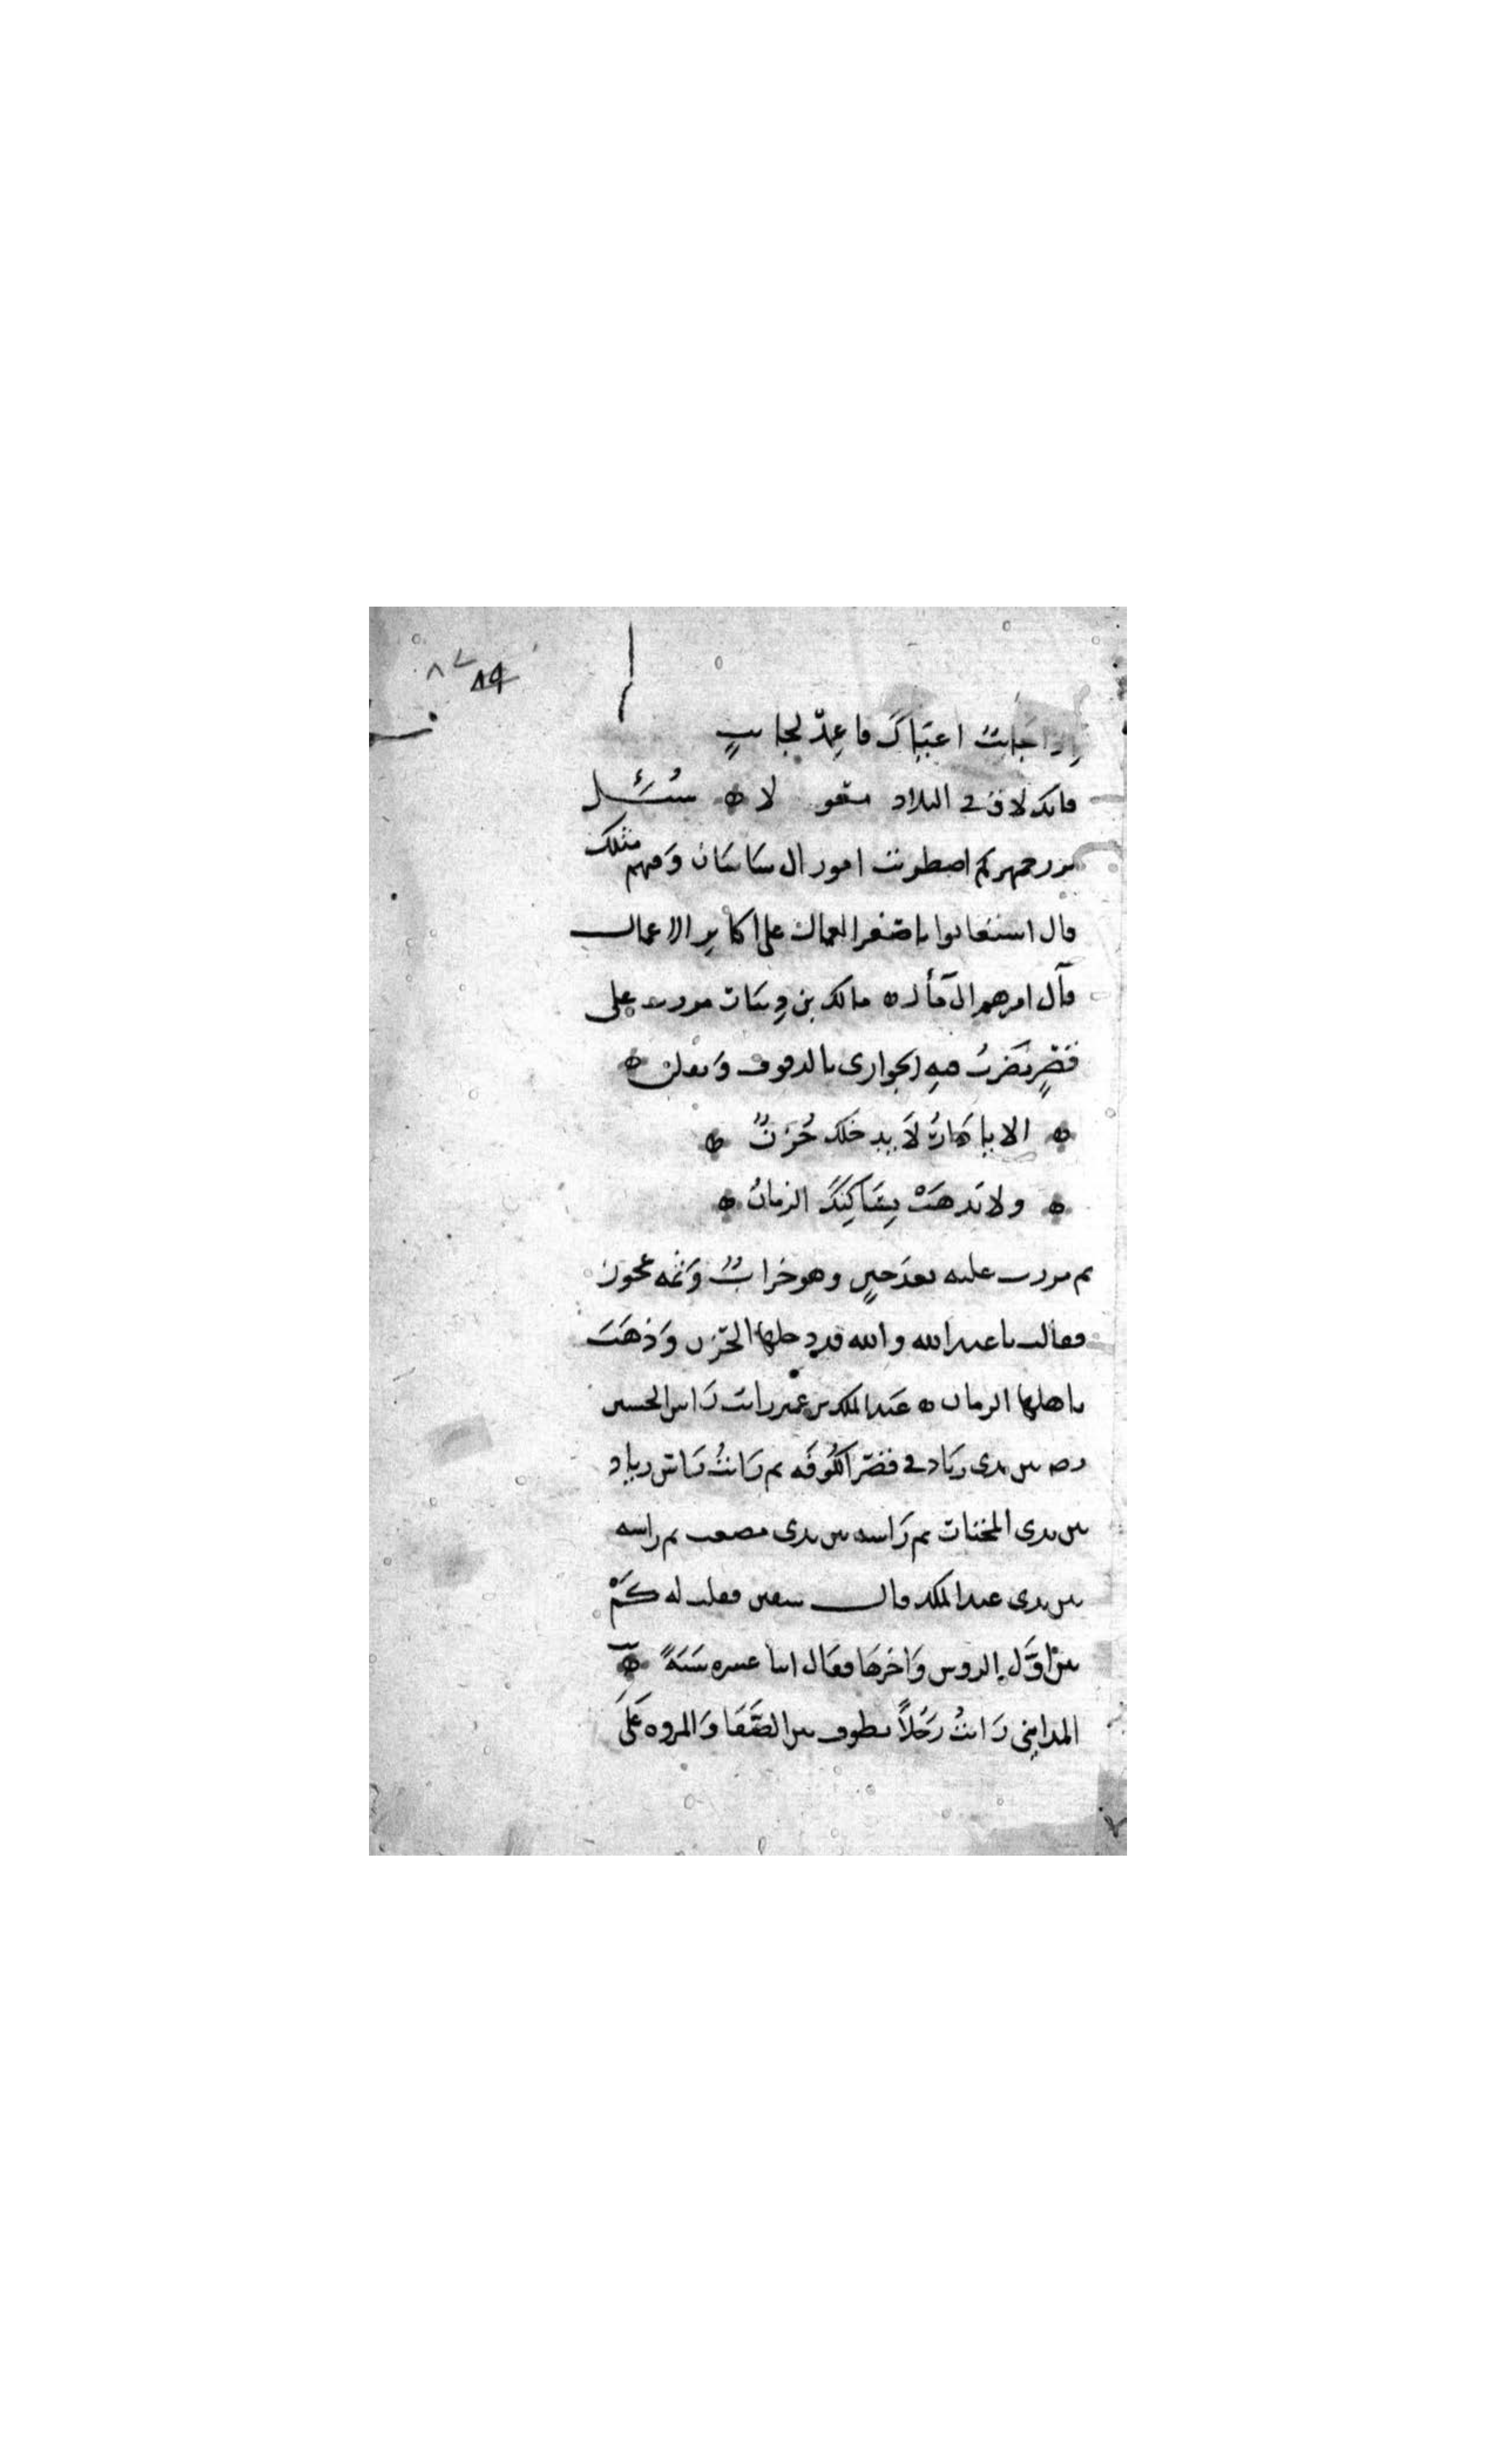 ٨٧
٨٩
إذا جانبٌ أعياكَ فاعمِدْ لجانبٍ
فانك لاقٍ في البلاد معولا ه سُئِل
بزرجمهر لم اضطربت امور ال ساسان وفيهم مثلك
قال استعانوا باصغر العمال على اكابر الاعمال
فآل امرهم الى ما آل ه مالك بن دينار مررت على
قصرٍ تضربُ فيهِ الجواري بالدفوف ويقلن ه
ه الا يا دارُ لا يدخلك حُزنٌ ه
ه ولا تذهبْ بساكنِكَ الزمانُ ه
ثم مررت عليه بعد حينٍ وهو خرابٌ وثمه عجوز
فقالت يا عبد الله والله قد دخلها الحزن وذهبَ
باهلها الزمان ه عبد الملك بن عمير رايت رَاس الحسين
رضه بين يدي زياد في قصر الكوفَه ثم رَايتُ رَاس زياد
بين يدي المختار ثم رَاسه بين يدي مصعب ثم راسه
بين يدي عبد الملك قال سفين فقلت له كَمْ
بين اوّل الروس وَاخرهَا فقال اثنا عشره سَنَةً ه
المدايني رَايتُ رَجُلاً يطوف بين الصَّفَا وَالمروه عَلَى